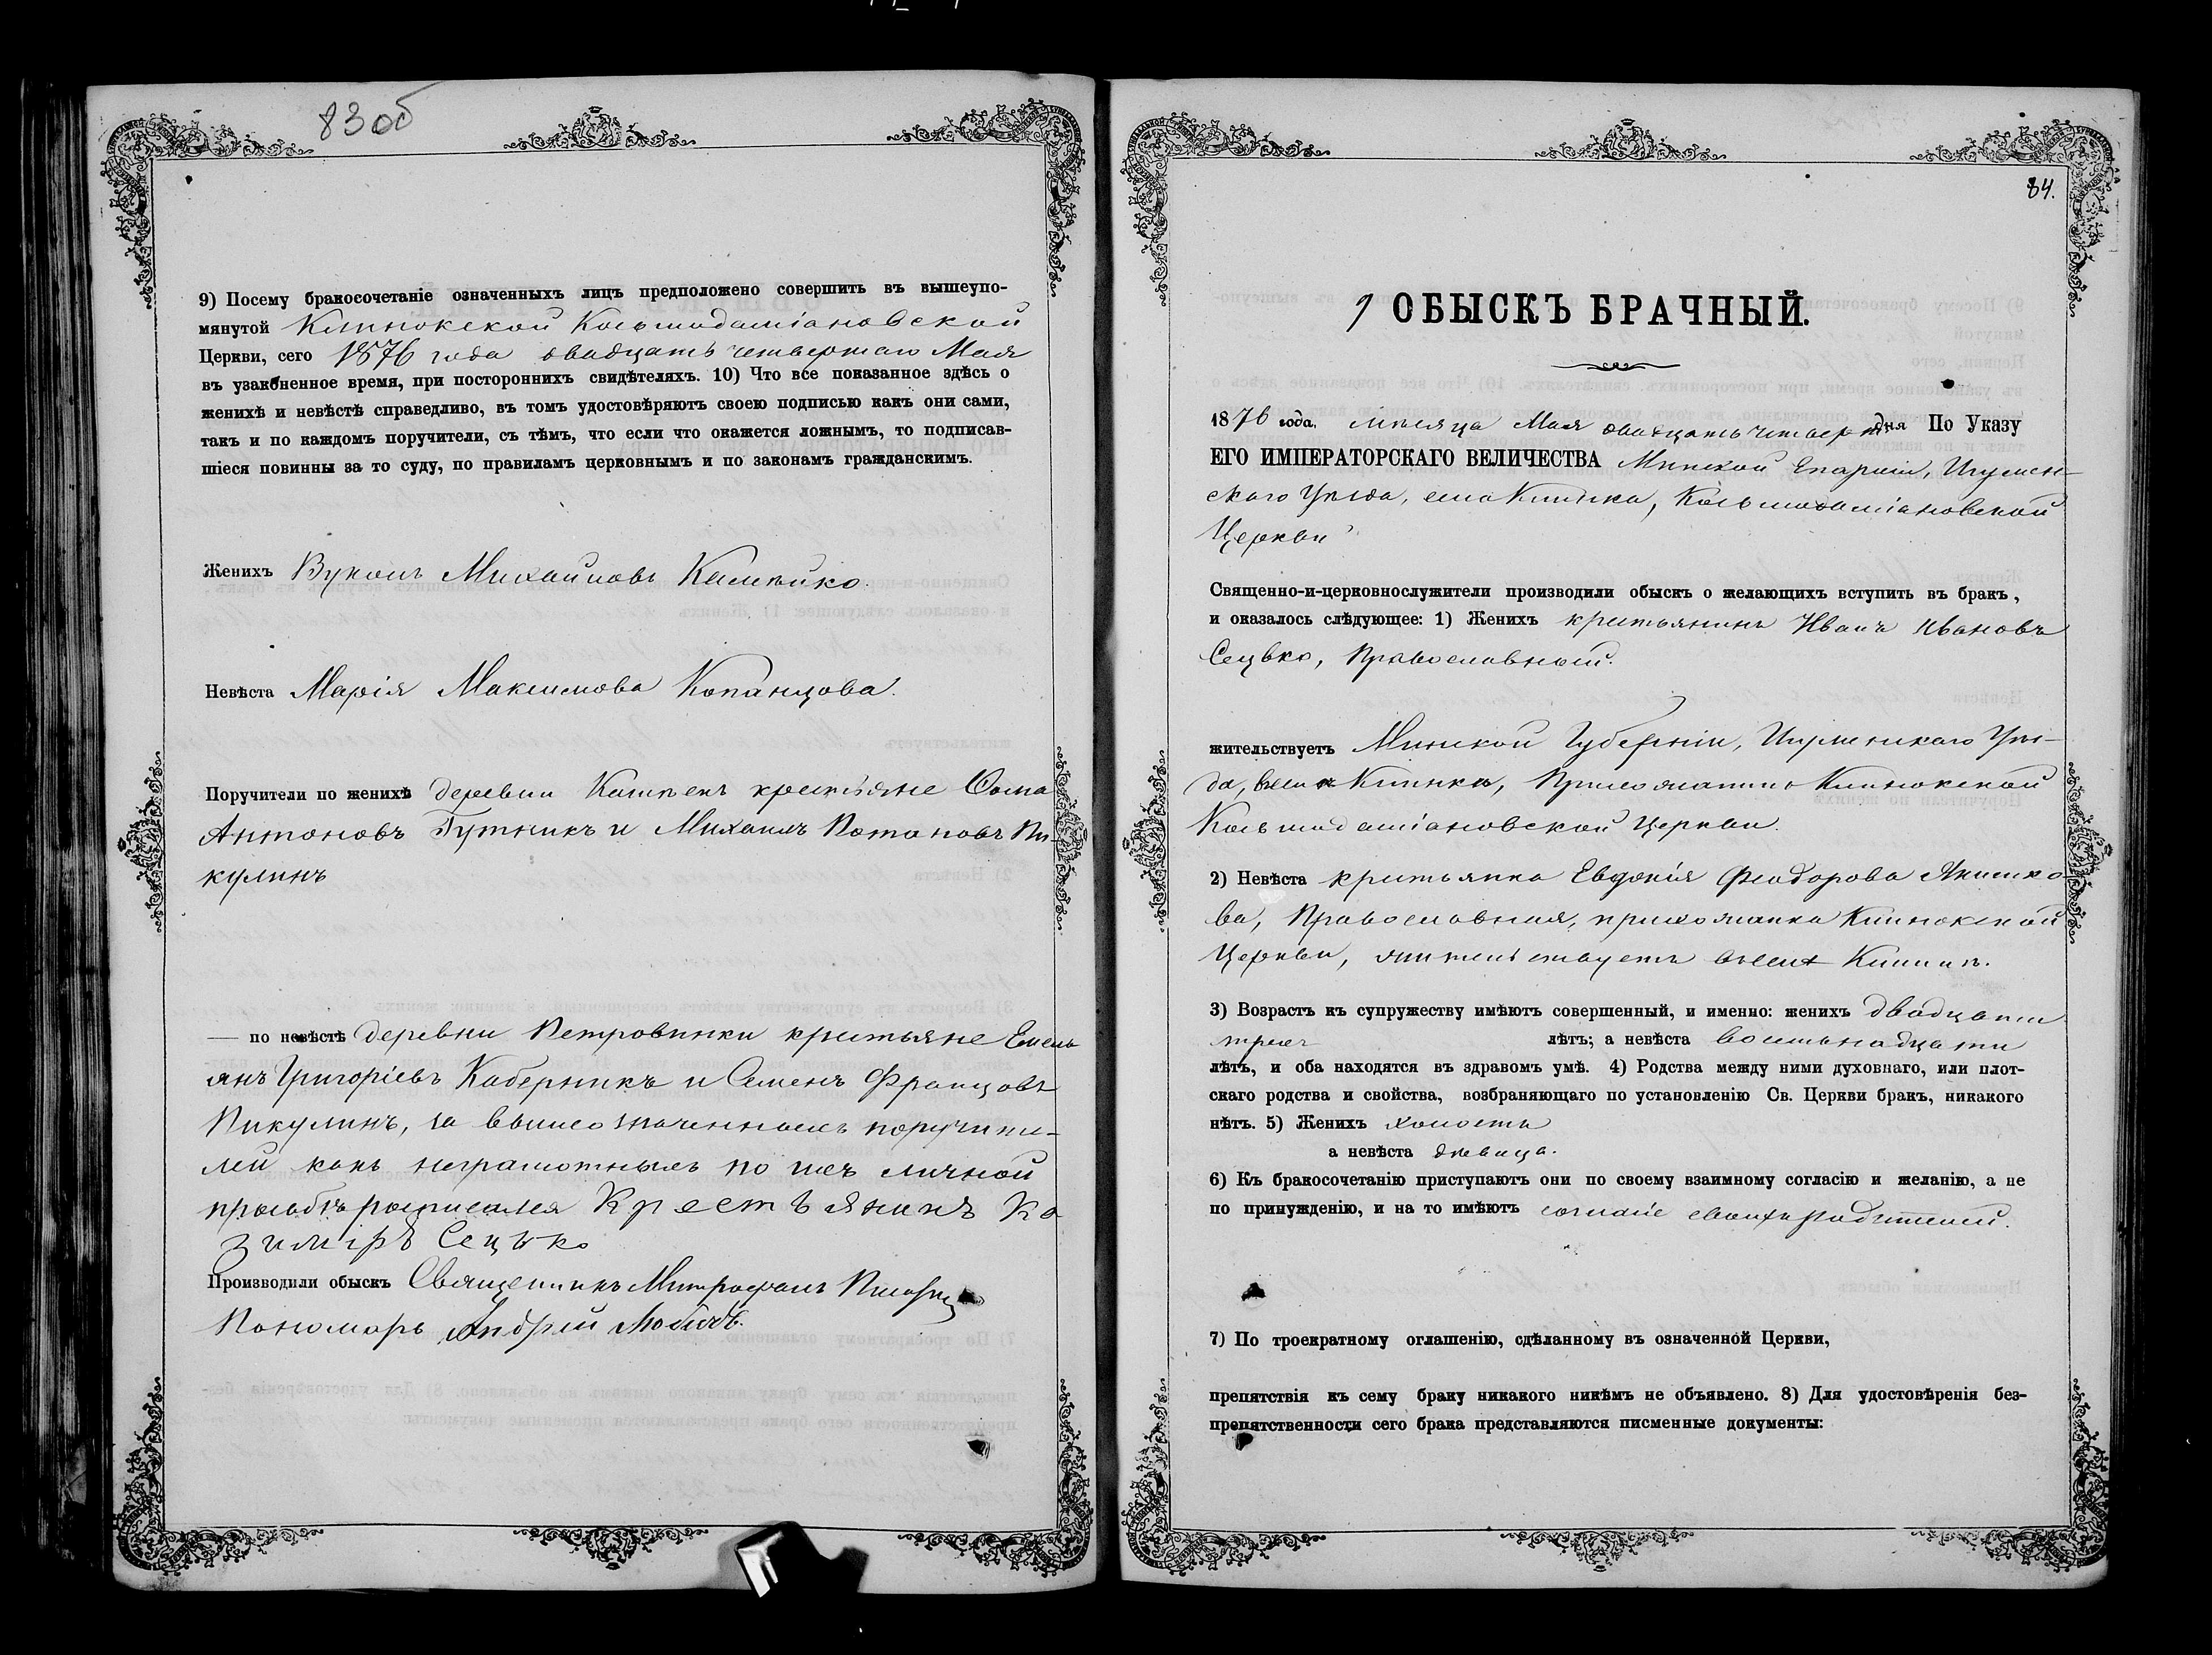 83 об
9) Посему бракосочетаніе означенныхъ лицъ предположено совершить въ вышеупо-
мянутой Клинокской Косьмодаміановской
Церкви, сего 1876 года двадцать четвертаго Мая
въ узаконенное время, при постороннихъ свидѣтеляхъ. 10) Что все показанное здѣсь о
женихѣ и невѣстѣ справедливо, въ томъ удостовѣряютъ своею подписью какъ они сами,
такъ и по каждомъ поручители, съ тѣмъ, что если что окажется ложнымъ, то подписав-
шіеся повинны за то суду, по правиламъ церковнымъ и по законамъ гражданскимъ.
Женихъ Вуколъ Михайловъ
Невѣста Марія Максимова Копанцова.
Поручители по женихѣ деревни крестьяне Ѳома
Антоновъ Гутникъ и Михаилъ Потаповъ Пи-
кулинъ
— по невѣстѣ деревни Петровинки крестьяне Емель
янъ Григоріевъ Каберникъ и Семенъ Францовъ
Пикулинъ, за вышеозначенныхъ поручите-
лей какъ неграмотныхъ по ихъ личной
просьбѣ росписался Крестьянинъ Ка
зиміръ Сецько
Производили обыскъ Священникъ Митрофанъ
Пономарь Андрей
84.
9 ОБЫСКЪ БРАЧНЫЙ.
1876 года. мѣсяца Мая двадцать четверт дня По Указу
ЕГО ИМПЕРАТОРСКАГО ВЕЛИЧЕСТВА Минской Епархіи, Игумен-
скаго Уѣзда, села Клинка, Косьмодаміановской
Церкви
Священно-и-церковнослужители производили обыскъ о желающихъ вступить въ бракъ,
и оказалось слѣдующее: 1) Женихъ крестьянинъ Иванъ Ивановъ
Сецько, Православный.
жительствуетъ Минской Губерніи, Игуменскаго Уѣз-
да, въ селѣ Клинкѣ, Прихожанинъ Клинокской
Косьмодаміановской Церкви.
2) Невѣста крестьянка Евдокія Феодорова
ва, Православная, прихожанка Клинокской
Церкви, жительствуетъ въ селѣ Клинкѣ.
3) Возрастъ къ супружеству имѣютъ совершенный, и именно: женихъ двадцати
трехъ лѣтъ; а невѣста восемьнадцати
лѣтъ, и оба находятся въ здравомъ умѣ. 4) Родства между ними духовнаго, или плот-
скаго родства и свойства, возбраняющаго по установленію Св. Церкви бракъ, никакого
нѣтъ. 5) Женихъ холостъ
а невѣста дѣвица.
6) Къ бракосочетанію приступаютъ они по своему взаимному согласію и желанію, а не
по принужденію, и на то имѣютъ согласіе своихъ родителей.
7) По троекратному оглашенію, сдѣланному въ означенной Церкви,
препятствія къ сему браку никакого никѣмъ не объявлено. 8) Для удостовѣренія без-
препятственности сего брака представляются писменные документы: